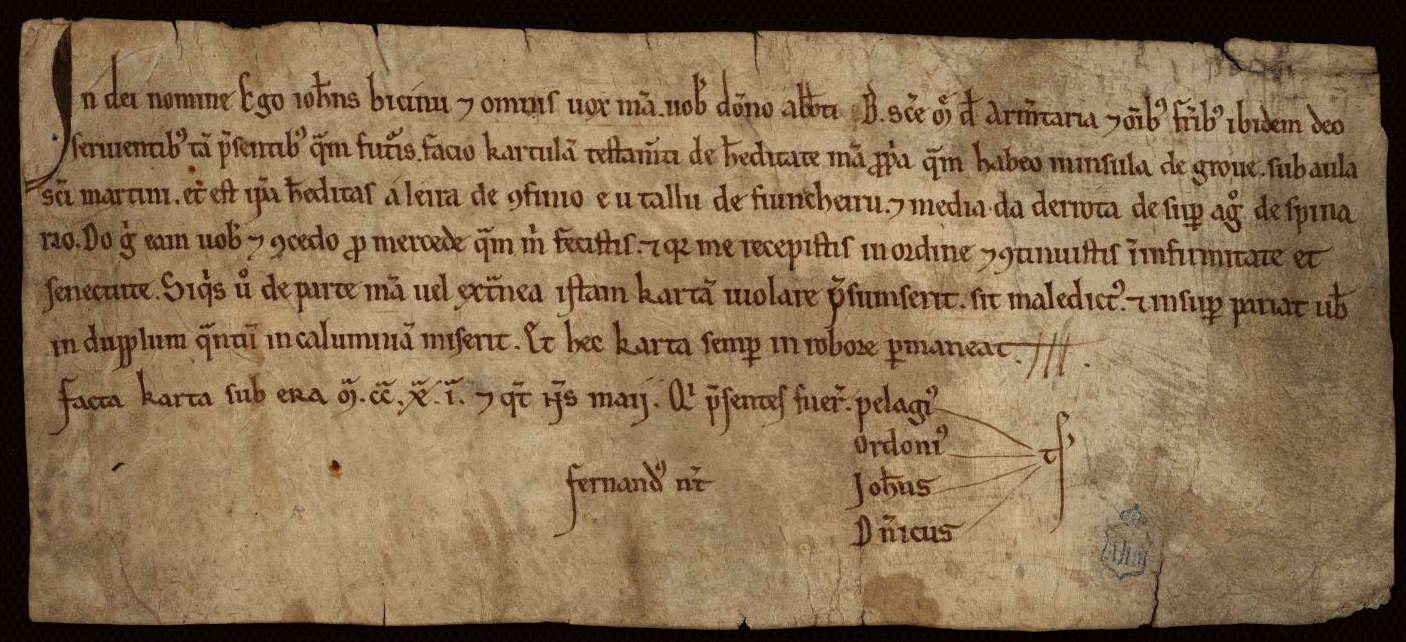 In dei nomine Ego ioħns bicinu ⁊ omnis uox mã. uoƀ dõno abb̄ti . B. sc̄e M̃ đ Arm̄taria ⁊ õibꝰ fr̄ibꝰ ibidem deo
seruentibꝰ tã p̃sentibꝰ q̃m futꝛ̃is. facio kartulã testam̃ti de ħeditate mã ꝓp̃a q̃m habeo in insula de groue. sub aula
sc̄i martini. et̃ est ip̃a ħeditas a leira de ꝯfinio e u tallu de fiuncheiru. ⁊ media da derrota de suꝑ ag̃ de spina
rio. Do g̃ eam uoƀ ⁊ ꝯcedo ꝓ mercede q̃m m̃ fecistis. ⁊ qꝛ me recepistis in ordine ⁊ ꝯtinuistis ĩ infirmitate et
senectute. Siq̃s ů de parte mã uel ext̃nea istam kartã uiolare p̃sumserit. sit maledictꝰ. ⁊ insuꝑ pariat uƀ
in dupplum q̃ntũ in calumniã miserit. Et hec karta semꝑ in robore ꝑmaneat.
facta karta sub era M̃. cc̃. x̃. ĩ. ⁊ qt̃ ij̃s maij. Qͥ p̃sentes fuer̃. pelagiꝰ
ordoniꝰ
ts
fernandꝰ nt̃
Joħns
Dñicus
AHN